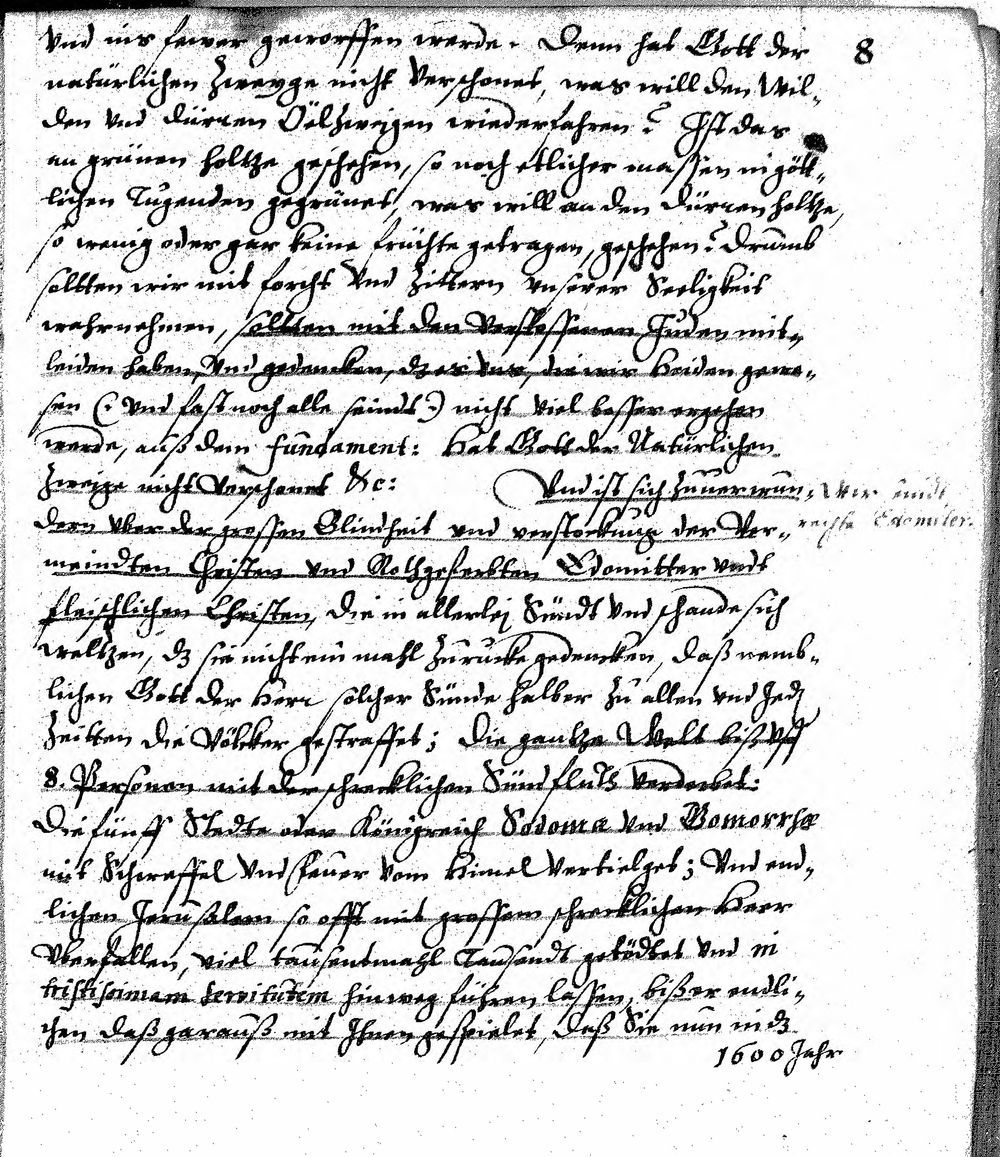 8
Vnd ins fewer geworffen werde. Denn hat Gott der
natürlichen Zweyge nicht Verschonet, was will den Wil-
den Vnd dürren Öelzweigen wiederfahren? Ist das
an grünen holtze geschehen, so noch etlicher massen in gött-
lichen Tugenden gegrünet, was will an den dürren holtze,
so wenig oder gar keine früchte getragen, geschehen? Drumb
sollten wir mit forcht Vnd Zittern vnserer Seeligkeit
wahrnehmen, sollten mit den Verstossenen Juden mit-
leiden haben, Vnd gedencken, dz es Vns, die wir Heiden gewe-
sen (: Vnd fast noch alle seindt :) nicht viel besser ergehen
werde, auß dem fundament: Hat Gott der Natürlichen
Zweige nicht Verschonet &c: Vnd ist sich Zuuerwun-
Wir sindt
rechte Edomiter.
dern vber der grossen Blindheit vnd verstockung der Ver-
meindten Christen vnd Rothgeferbten Edomitter vndt
fleischlichen Christen, die in allerlej Sündt Vnd schande sich
weltzen, dz sie nicht ein mahl Zurucke gedencken, daß nemb-
lichen Gott der Herr solcher Sünde halber Zu allen vnd Jed
Zeitten die Völcker gestraffet; die gantze Welt biß vff
8. Personen mit der schrecklichen Sündfluth Verderbet:
Die fünff Stedte oder Königreich Sodomæ Vnd Gomorrhæ
mit Schweffel Vnd feuer vom Himel Vertielget; Vnd end-
lichen Jerusalem so offt mit grossem schrecklichen Heer
Vberfallen, viel tausentmahl Tausendt getödtet Vnd in
tristissimam servitutem hinweg führen lassen, biß er endli-
chen daß garauß mit Ihnen gespielet, daß Sie nun in dz
1600 Jahr